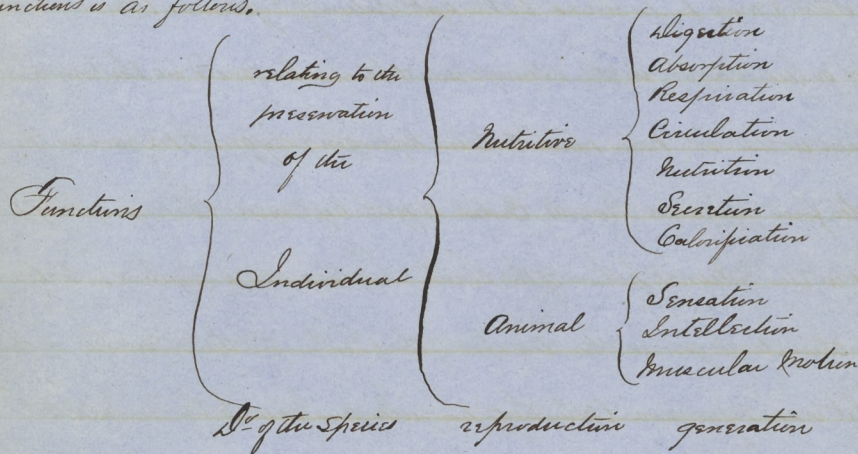 functions is as follows.
Functions
relating to the
preservation
of the
Individual
Nutritive
Digestion
Absorption
Respiration
Circulation
Nutrition
Secretion
Calorification
Animal
Sensation
Intellection
Muscular Motion
Do. of the Species reproduction generation